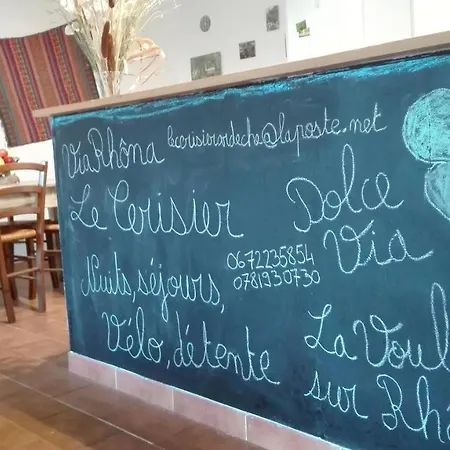 ViaRhôna lecerisierardeche@laposte.net
Le Cerisier
Nuits, séjours,
Vélo, détente
0672235854
0781930730
Dolce
Via
La Voul
sur Rhô